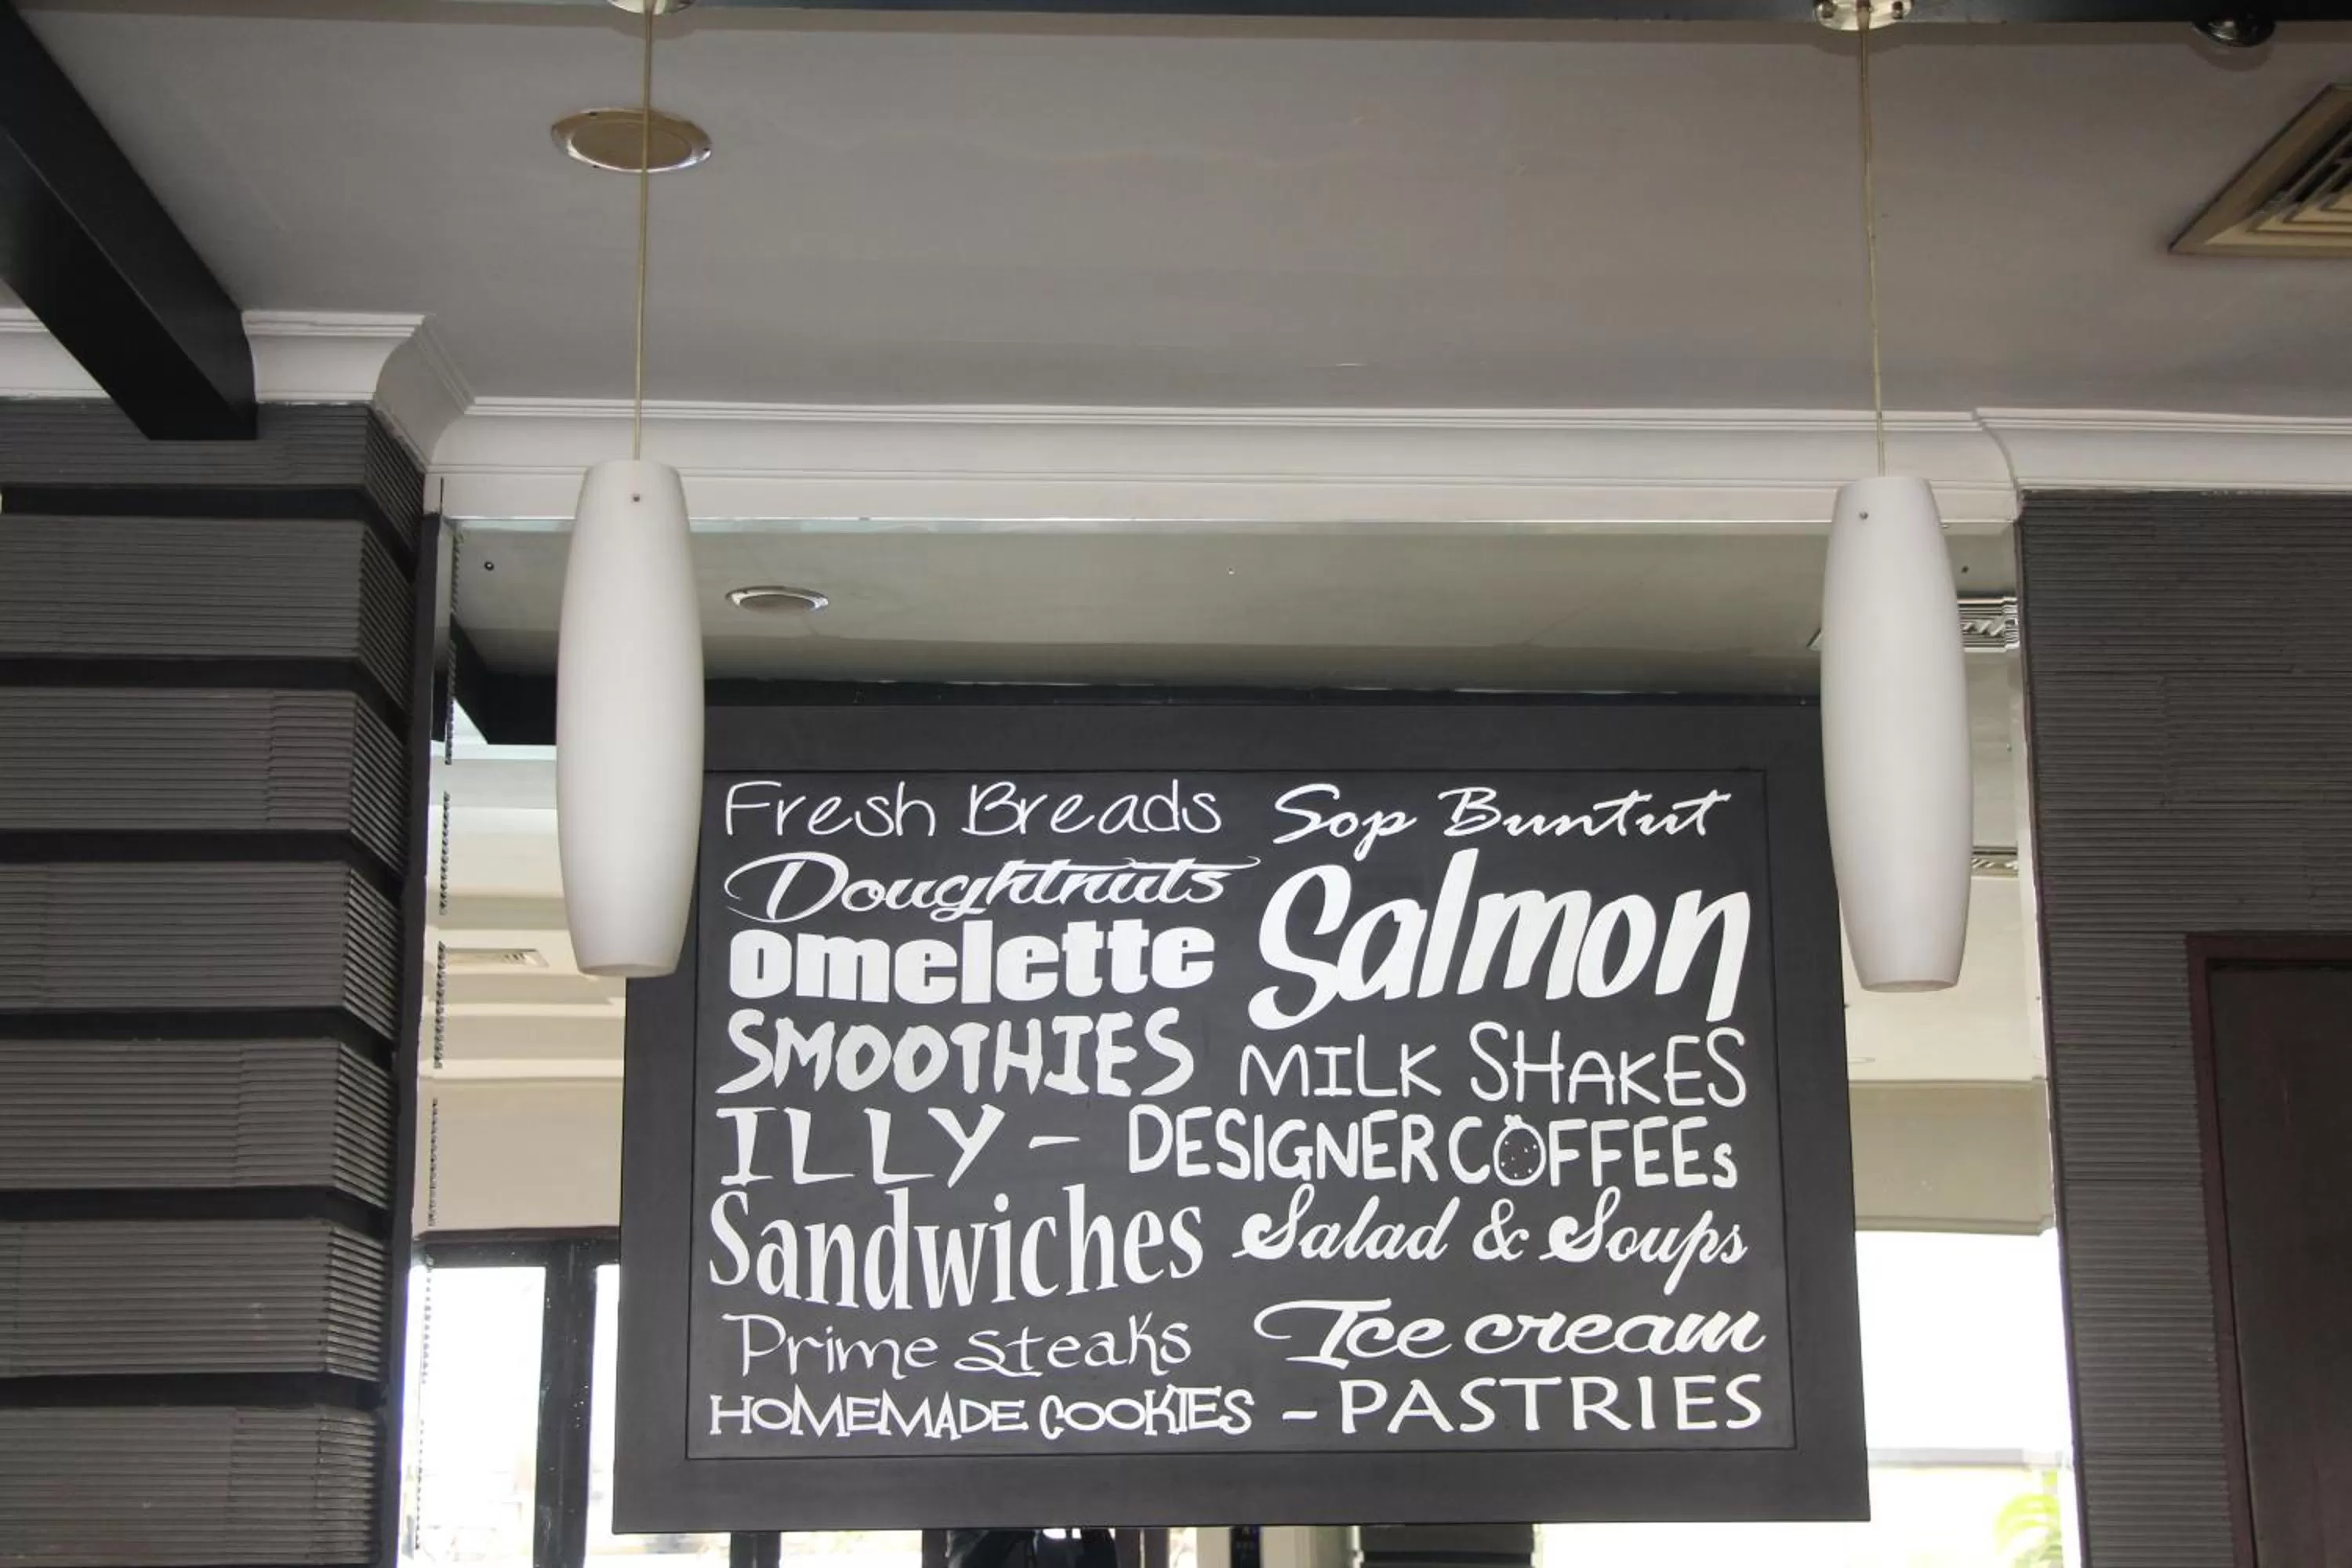 Fresh Breads Sop Buntut
Doughtnuts Salmon
omelette
SMOOTHIES MILK SHAKES
ILLY - DESIGNER COFFEEs
Sandwiches Salad & Soups
Prime steaks Ice cream
HOMEMADE COOKIES - PASTRIES